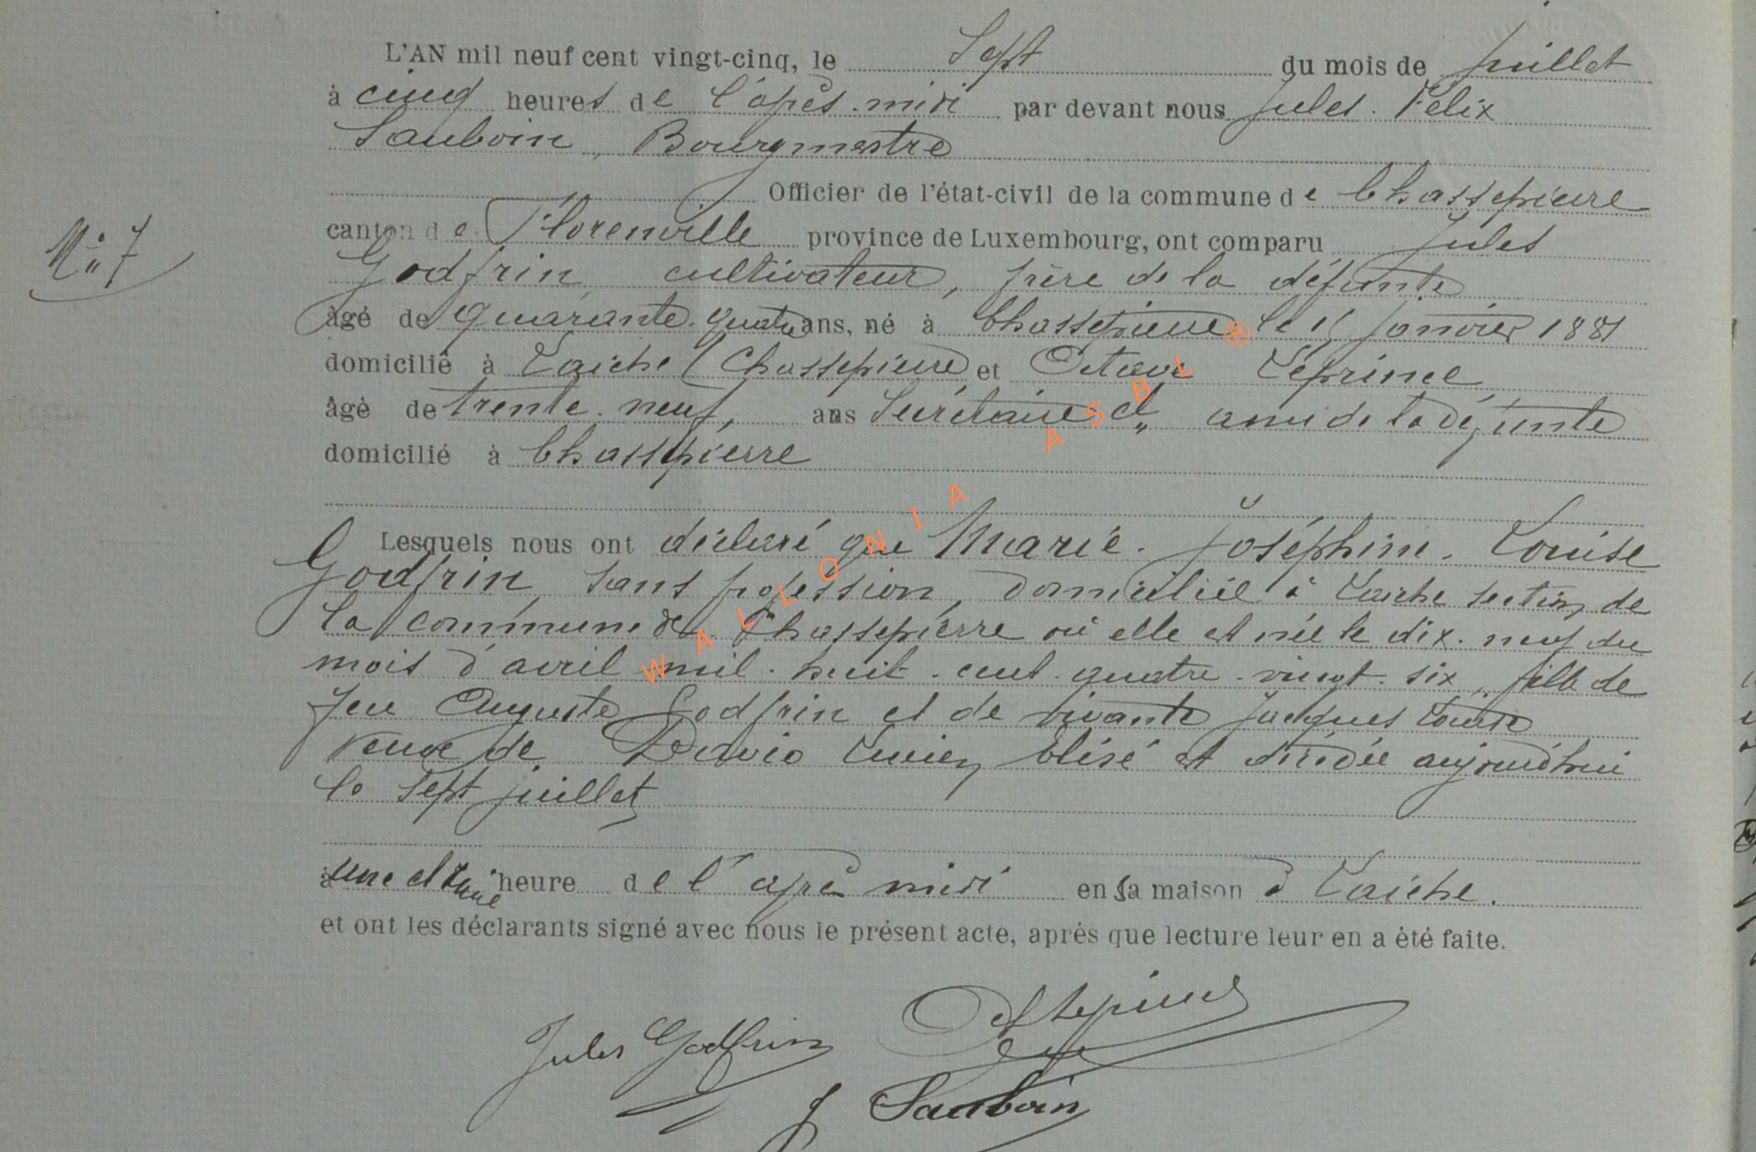 L'AN mil neuf cent vingt-cinq, le Sept du mois de juillet
à cinq heures de l'après-midi par devant nous Jules Félix
Sauboin, Bourgmestre
Officier de l'état-civil de la commune de Chassepierre
N° 7
canton de Florenville province de Luxembourg, ont comparu Jules
Godfrin cultivateur, frère de la défunte
âgé de quarante-quatre ans, né à Chassepierre le janvier 1881
domicilié à Laiche (Chassepierre et Octave Leprince
âgé de trente-neuf, ans Secrétaire cl ami de la défunte
domicilié à Chassepierre
Lesquels nous ont déclaré que Marie-Joséphine-Louise
Godfrin sans profession, domiciliée à Laiche section de
la commune de Chassepierre où elle est née le dix-neuf du
mois d'avril mil-huit-cent-quatre-vingt-six, fille de
feu Auguste Godfrin et de vivante Jacques Louise
veuve de David Lucien Elisé est décédée aujourd'hui
le sept juillet
à une et demie heure de l'après midi en sa maison à Laiche.
et ont les déclarants signé avec nous le présent acte, après que lecture leur en a été faite.
Jules Godfrin Oct Leprince
J Sauboin
WALLONIA ASBL ®